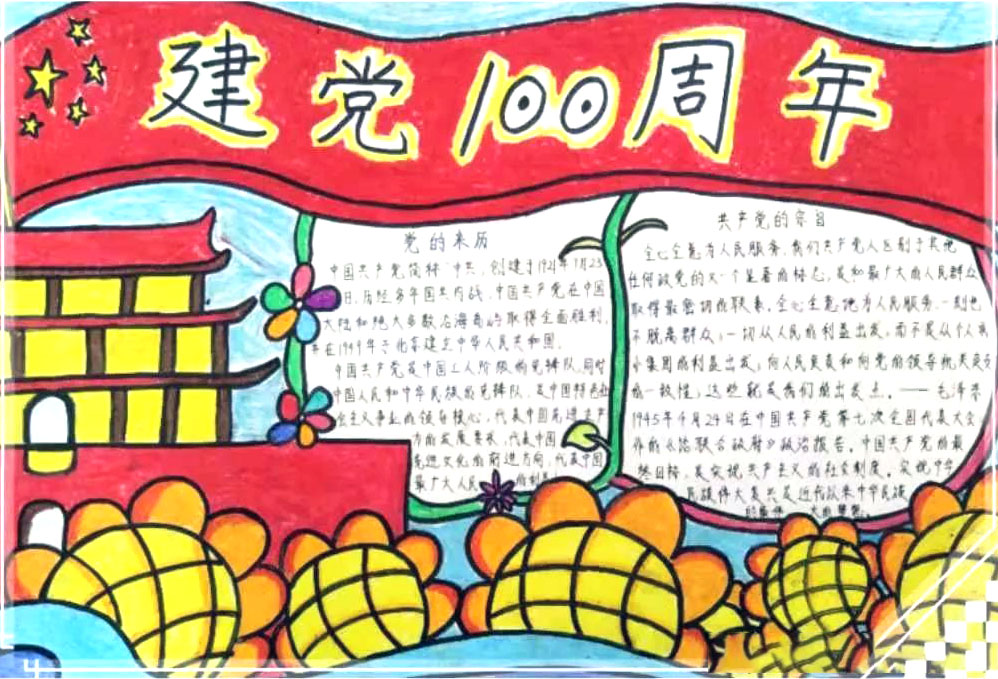 建党100周年
党的来历
中国共产党简称"中共",创建于1921年7月23
日,历经多年国共内战,中国共产党在中国
大陆和绝大多数沿海岛屿取得全面胜利,
并在1949年于北京建立中华人民共和国。
中国共产党是中国工人阶级的先锋队,同时
中国人民和中华民族的先锋队,是中国特色社
会主义事业的领导核心,代表中国先进生产
力的发展要求,代表中国
先进文化的前进方向,代表中国
最广大人民 的利益
共产党的宗旨
全心全意为人民服务,我们共产党人区别于其他
任何政党的又一个显著的标志,是和最广大的人民群众
取得最密切的联系,全心全意地为人民服务,一刻也
不脱离群众;一切从人民的利益出发,而不是从个人或
小集团的利益出发;向人民负责和向党的领导机关负责
的一致性;这些就是我们的出发点。——毛泽东
1945年4月24日在中国共产党第七次全国代表大会
作的《论联合政府》政治报告。中国共产党的最
终目标,是实现共产主义的社会制度。实现中华
民族伟大复兴是近代以来中华民族
的最伟 大的梦想。